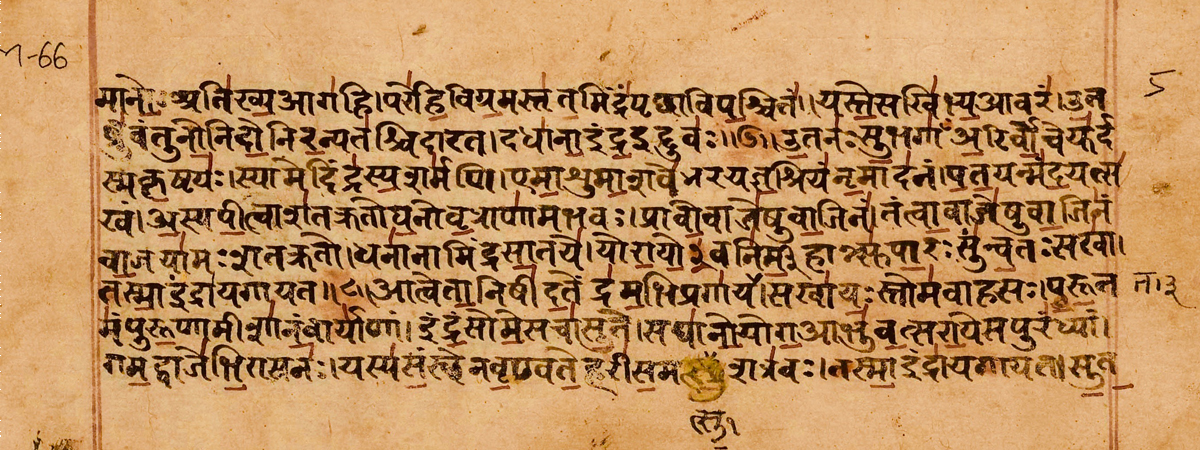 m-66
मानोअतिख्यआगहि।परेहिविग्रमस्तृतमिंद्रंपृच्छाविपश्चितं।यस्तेसखिभ्यआवरं।उत
5
ब्रुवंतुनोनिदोनिरन्यतश्चिदारत।दधानाइंद्रइद्दुवः॥७॥उतनःसुभगाँअरिर्वोचेयुर्द
स्मकृष्टयः।स्यामेदिंद्रस्यशर्मणि।एमाशुमाशवेभरयज्ञश्रियंनृमादनं।पतयन्मंदयत्स
खं।अस्यपीत्वाशतक्रतोघनोवृत्राणामभवः।प्रावोवाजेषुवाजिनं।तंत्वावाजेषुवाजिनं
वाजयामःशतक्रतो।धनानामिंद्रसातये।योरायो३वनिर्महान्त्सुपारःसुन्वतःसखा।
तस्माइंद्रायगायत॥८॥आत्वेतानिषीदतेंद्रमभिप्रगायत।सखायःस्तोमवाहसः।पुरूत
मंपुरूणामीशानंवार्याणां।इंद्रंसोमेसचासुते।सघानोयोगआभुवत्सरायेसपुरंध्यां।
गमद्वाजेभिरासनः।यस्यसंस्थेनवृण्वतेहरीसमत्सुशत्रवः।तस्माइंद्रायगायत।सुत
त्सु१